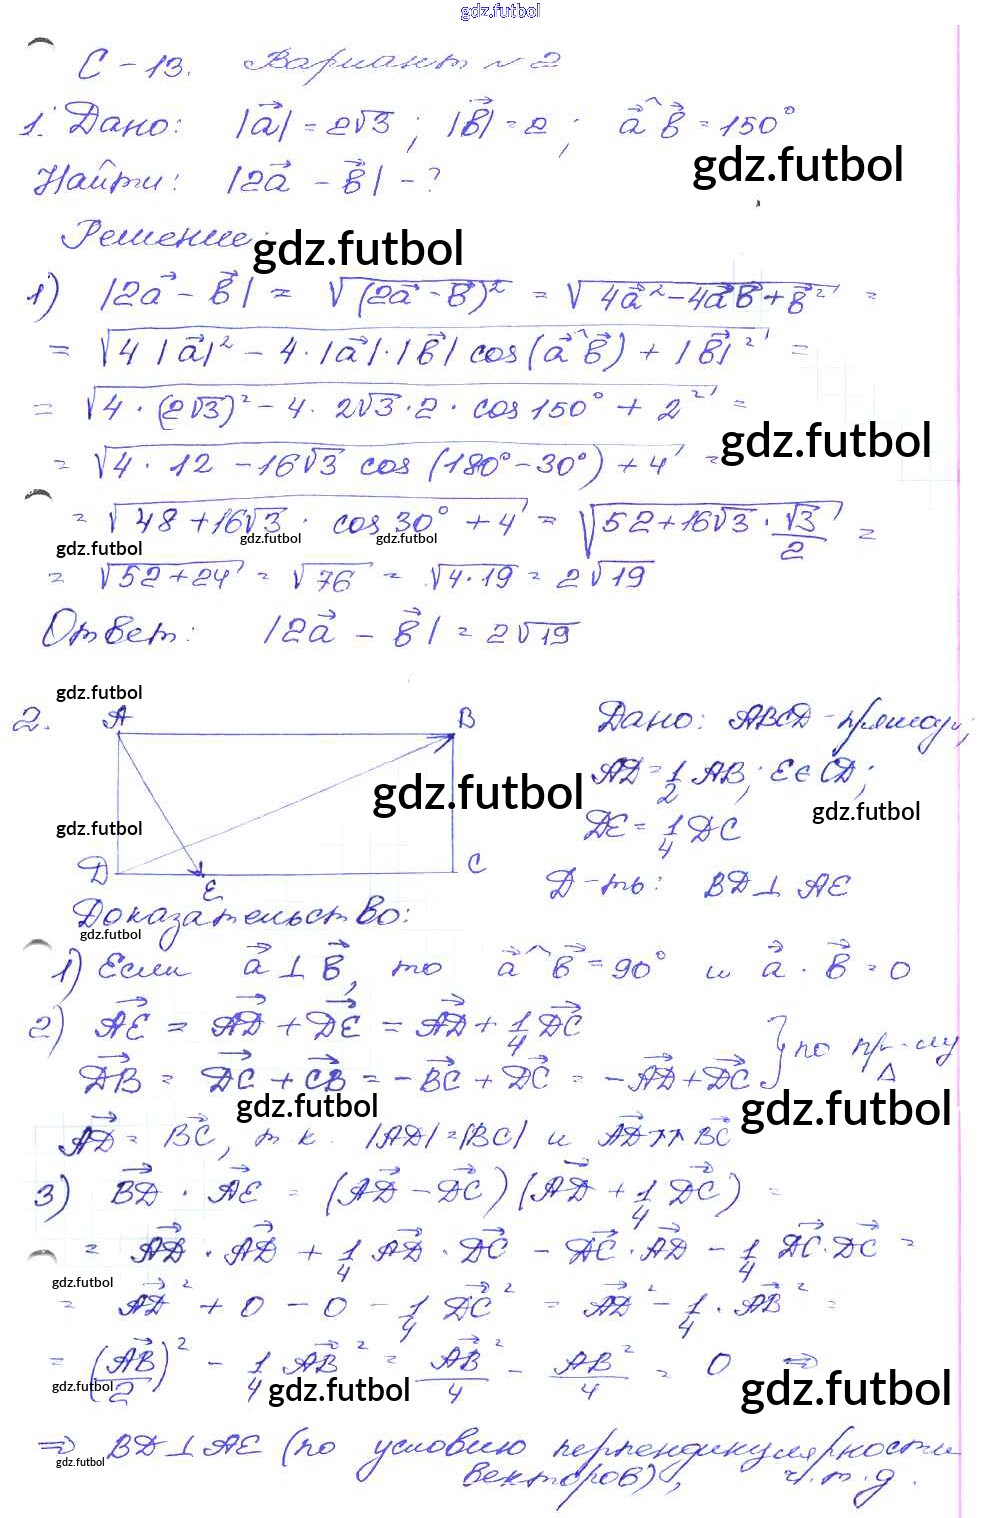 gdz.futbol
С-13. Вариант №2
1. Дано: |a⃗| = 2√3 ; |b⃗| = 2 ; a⃗ ^ b⃗ = 150°
gdz.futbol
Найти: |2a⃗ - b⃗| - ?
Решение:
gdz.futbol
1) |2a⃗ - b⃗| = √(2a⃗ - b⃗)² = √4a⃗² - 4a⃗b⃗ + b⃗² =
= √4|a⃗|² - 4·|a⃗|·|b⃗| cos(a⃗ ^ b⃗) + |b⃗|² =
= √4·(2√3)² - 4·2√3·2·cos150° + 2² =
gdz.futbol
= √4·12 - 16√3 cos(180° - 30°) + 4 =
= √48 + 16√3 · cos30° + 4 = √52 + 16√3 · √3/2 =
gdz.futbol gdz.futbol gdz.futbol
= √52 + 24 = √76 = √4·19 = 2√19
Ответ: |2a⃗ - b⃗| = 2√19
gdz.futbol
2. A B
D E C
Дано: ABCD - прямоуг;
AD = 1/2 AB; E∈CD;
gdz.futbol
gdz.futbol
DE = 1/4 DC
gdz.futbol
Д-ть: BD ⊥ AE
Доказательство:
gdz.futbol
1) Если a⃗ ⊥ b⃗, то a⃗ ^ b⃗ = 90° и a⃗ · b⃗ = 0
2) AE⃗ = AD⃗ + DE⃗ = AD⃗ + 1/4 DC⃗
DB⃗ = DC⃗ + CB⃗ = -BC⃗ + DC⃗ = -AD⃗ + DC⃗ } по пр-лу Δ
gdz.futbol gdz.futbol
AD⃗ = BC⃗, т.к. |AD| = |BC| и AD⃗ ↑↑ BC⃗
3) BD⃗ · AE⃗ = (AD⃗ - DC⃗)(AD⃗ + 1/4 DC⃗) =
= AD⃗ · AD⃗ + 1/4 AD⃗ · DC⃗ - DC⃗ · AD⃗ - 1/4 DC⃗ · DC⃗ =
gdz.futbol
= AD⃗² + 0 - 0 - 1/4 DC⃗² = AD⃗² - 1/4 · AB⃗² =
= (AB⃗/2)² - 1/4 AB⃗² = AB⃗²/4 - AB²/4 = 0 ⇒
gdz.futbol gdz.futbol gdz.futbol
⇒ BD ⊥ AE (по условию перпендикулярности
gdz.futbol
векторов), ч.т.д.